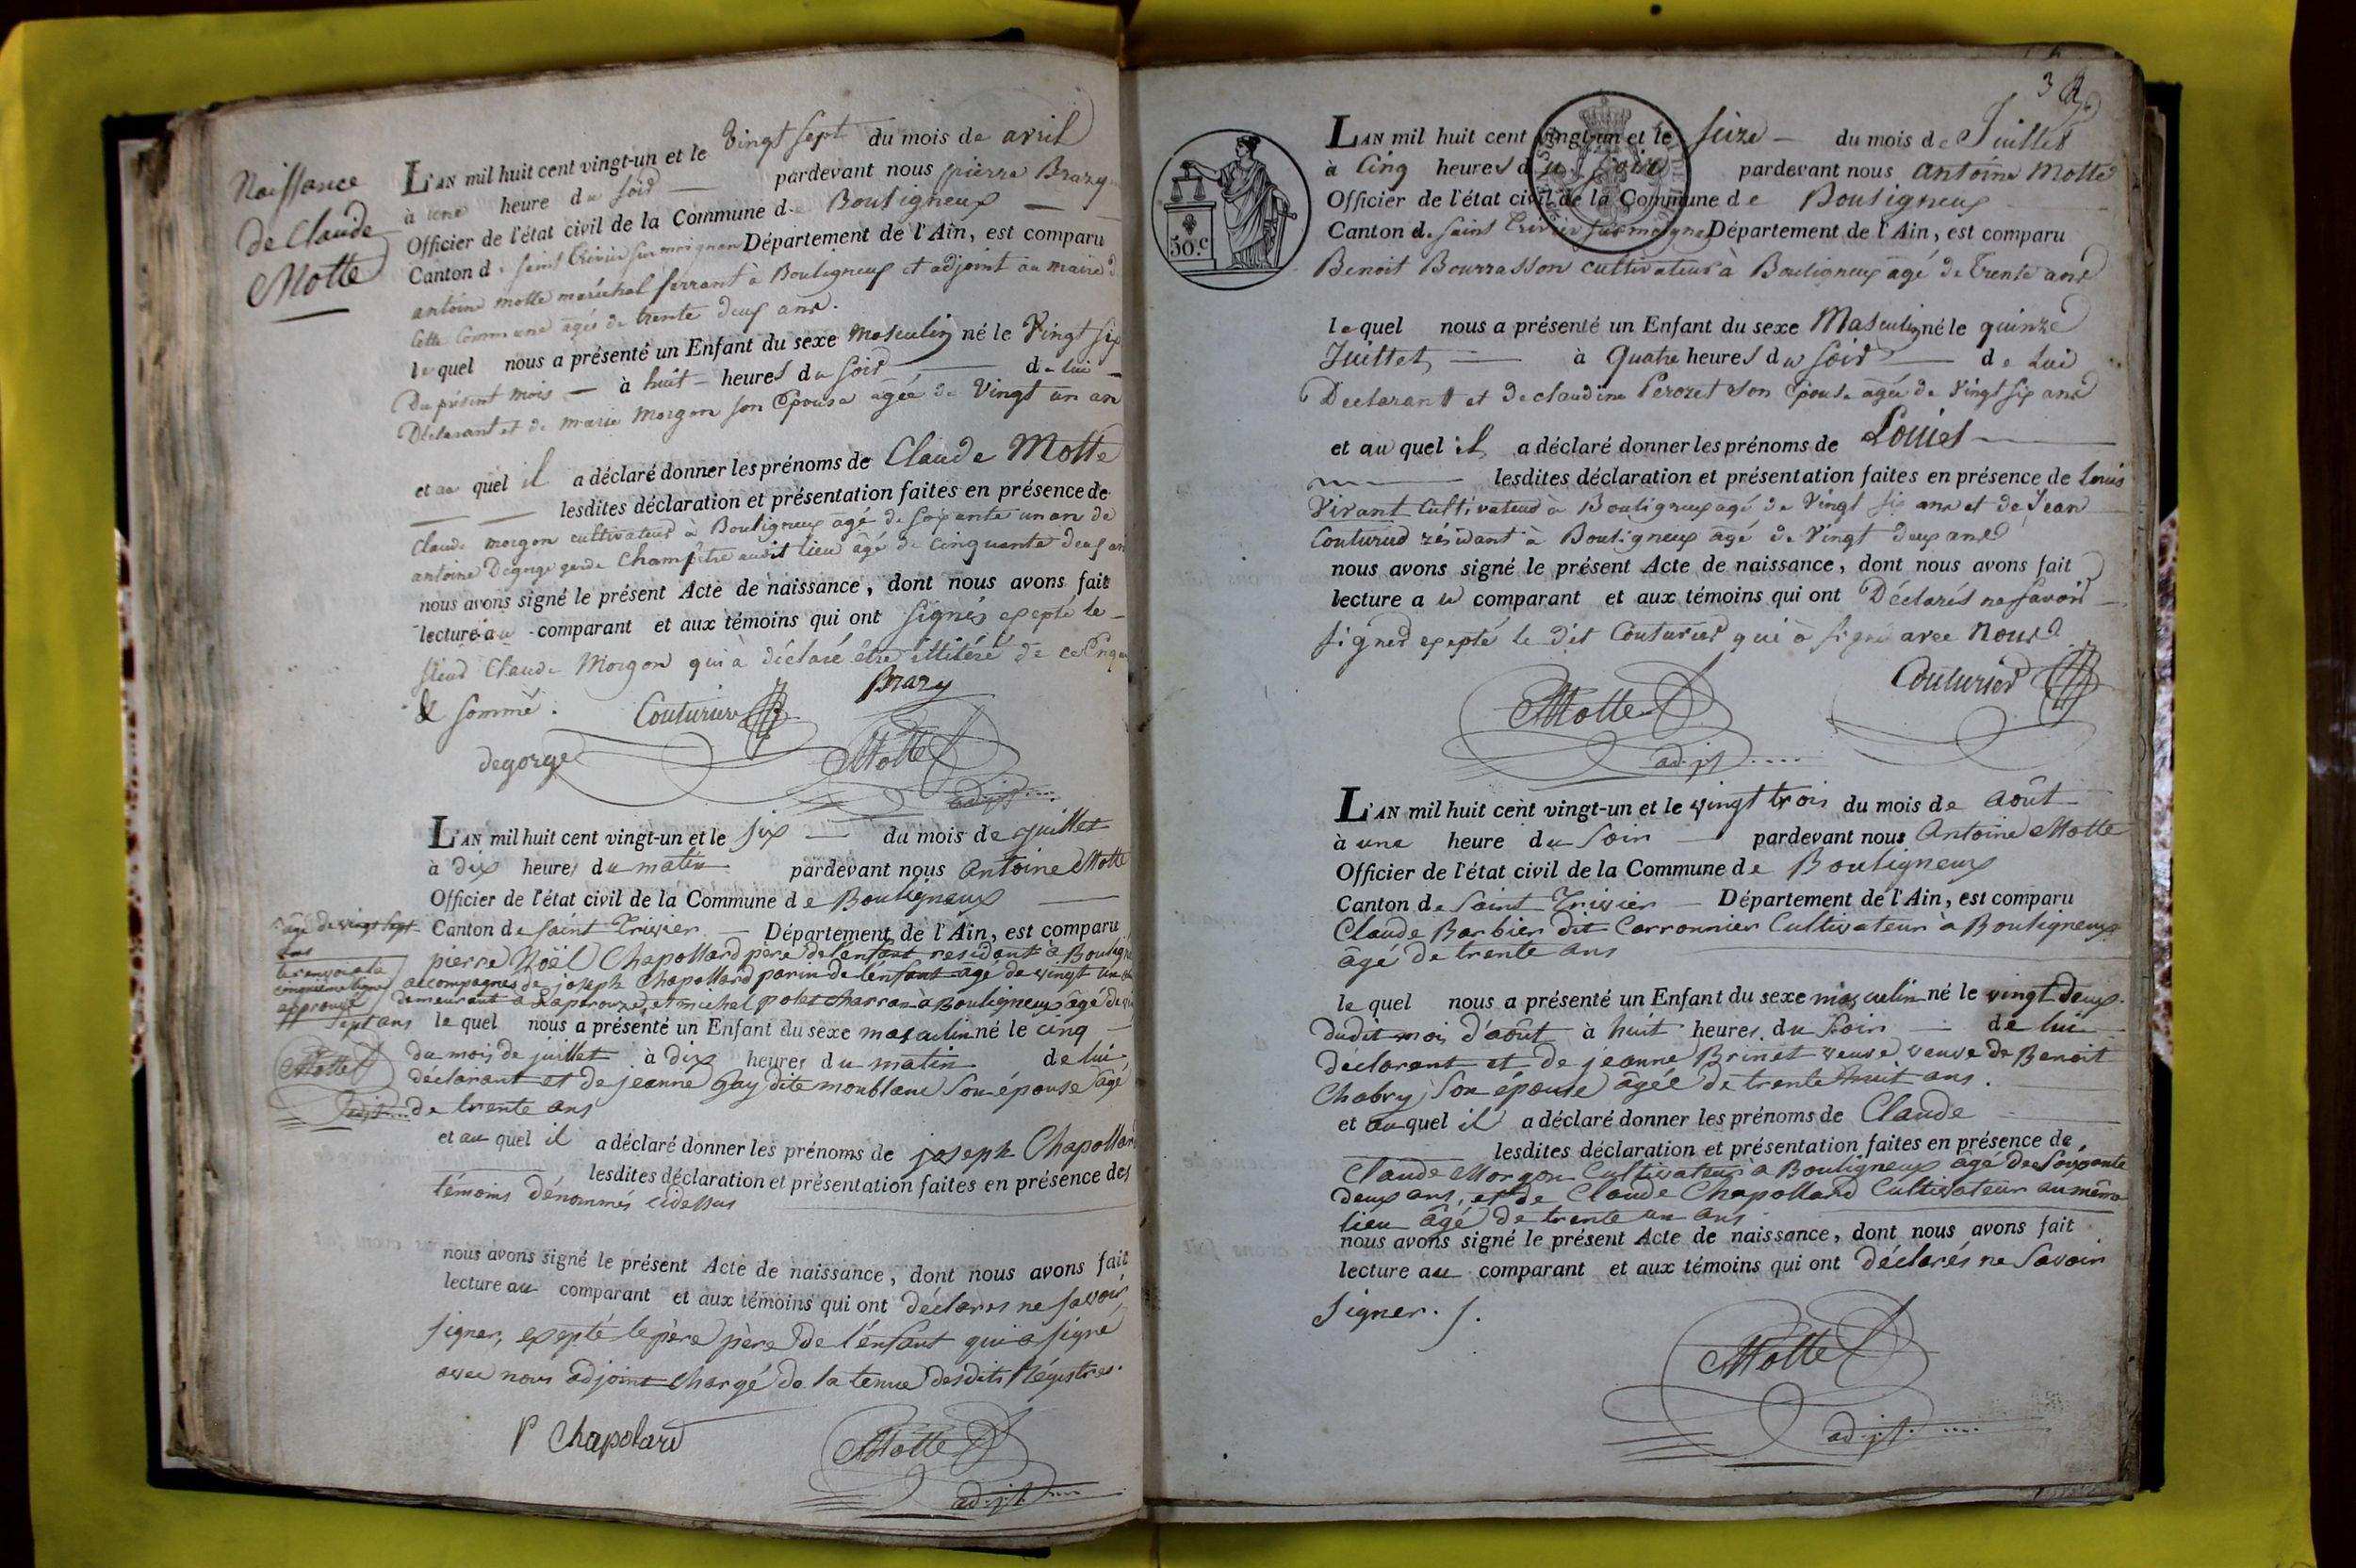 Naissance
de Claude
Motte
L'AN mil huit cent vingt-un et le Vingt sept du mois de avril
à une heure du soir pardevant nous pierre Brazy
Officier de l'état civil de la Commune de Bouligneux
Canton de saint Trivier sur moignan Département de l'Ain, est comparu
antoine motte maréchal ferrant à Bouligneux et adjoint au maire d
cette commune agée de trente deux ans.
le quel nous a présenté un Enfant du sexe masculin né le Vingt six
Du présent mois à huit heures du soir de lui
Déclarant et de marie morgon son Epouse agée de Vingt un an
et au quel il a déclaré donner les prénoms de Claude Motte
lesdites déclaration et présentation faites en présence de
Claude morgon cultivateur à Bouligneux agé de soixante un an de
antoine Degorge garde Champêtre audit lieu âgé de cinquante deux an
nous avons signé le présent Acte de naissance, dont nous avons fait
lecture au comparant et aux témoins qui ont signés exepté le
sieur Claude Morgon qui à déclaré être illitéré de ce Enqu
& sommé.
Couturier Brazy
degorge Motte
adjt
L'AN mil huit cent vingt-un et le six du mois de juillet
à dix heures du matin pardevant nous Antoine Motte
Officier de l'état civil de la Commune de Bouligneux
Canton de saint Trivier Département de l'Ain, est comparu
âgé de vingt sept
ans
le renvoi à la
cinquieme ligne
approuvé
Motte
adjt
pierre Noël Chapollard père de l'enfant residant à Bouligne
accompagnés de joseph Chapollard parin de l'enfant âgé de vingt un
demeurant à Laperouze, et michel polet charron à Bouligneux âgé de
sept ans le quel nous a présenté un Enfant du sexe masculin né le cinq
du mois de juillet à dix heures du matin de lui
déclarant et de jeanne Gay dite monblanc son épouse âgé
de trente ans
et au quel il a déclaré donner les prénoms de joseph Chapollard
lesdites déclaration et présentation faites en présence des
témoins dénommés cidessus
nous avons signé le présent Acte de naissance, dont nous avons fait
lecture au comparant et aux témoins qui ont déclarés ne savoir
signer, exepté le père père de l'enfant qui a signé
avec nous adjoint chargé de la tenue desdits Régistres.
P Chapolard Motte
adjt
3
50.c
L'AN mil huit cent vingt-un et le seize du mois de Juillet
à Cinq heures du soir pardevant nous Antoine Motte
Officier de l'état civil de la Commune de Bouligneux
Canton de saint Trivier sur moignan Département de l'Ain, est comparu
Benoit Bourrasson cultivateur à Bouligneux agé de Trente ans
le quel nous a présenté un Enfant du sexe Masculin né le quinze
Juillet à Quatre heures du soir de Lui
Déclarant et de claudine Perozet son Epouse agée de Vingt six ans
et au quel il a déclaré donner les prénoms de Louis
lesdites déclaration et présentation faites en présence de Louis
Virant Cultivateur à Bouligneux agé de Vingt six ans et de Jean
Couturier résidant à Bouligneux âgé de Vingt deux ans
nous avons signé le présent Acte de naissance, dont nous avons fait
lecture au comparant et aux témoins qui ont Déclarés ne savoir
signer exepté le dit Couturier qui à signé avec Nous
Motte Couturier
adjt
L'AN mil huit cent vingt-un et le vingt trois du mois de Août
à une heure du soir pardevant nous Antoine Motte
Officier de l'état civil de la Commune de Bouligneux
Canton de Saint Trivier Département de l'Ain, est comparu
Claude Barbier dit Carronnier Cultivateur à Bouligneux
agé de trente ans
le quel nous a présenté un Enfant du sexe masculin né le vingt deux
dudit mois d'août à huit heures du soir de lui
déclarant et de jeanne Brinet veuve veuve de Benoit
Chabry, son épouse âgée de trente huit ans.
et au quel il a déclaré donner les prénoms de Claude
lesdites déclaration et présentation faites en présence de
Claude Morgon Cultivateur à Bouligneux âgé de Soixante
deux ans, et de Claude Chapollard Cultivateur au même
lieu âgé de trente un ans
nous avons signé le présent Acte de naissance, dont nous avons fait
lecture au comparant et aux témoins qui ont déclarés ne savoir
signer.
Motte
adjt